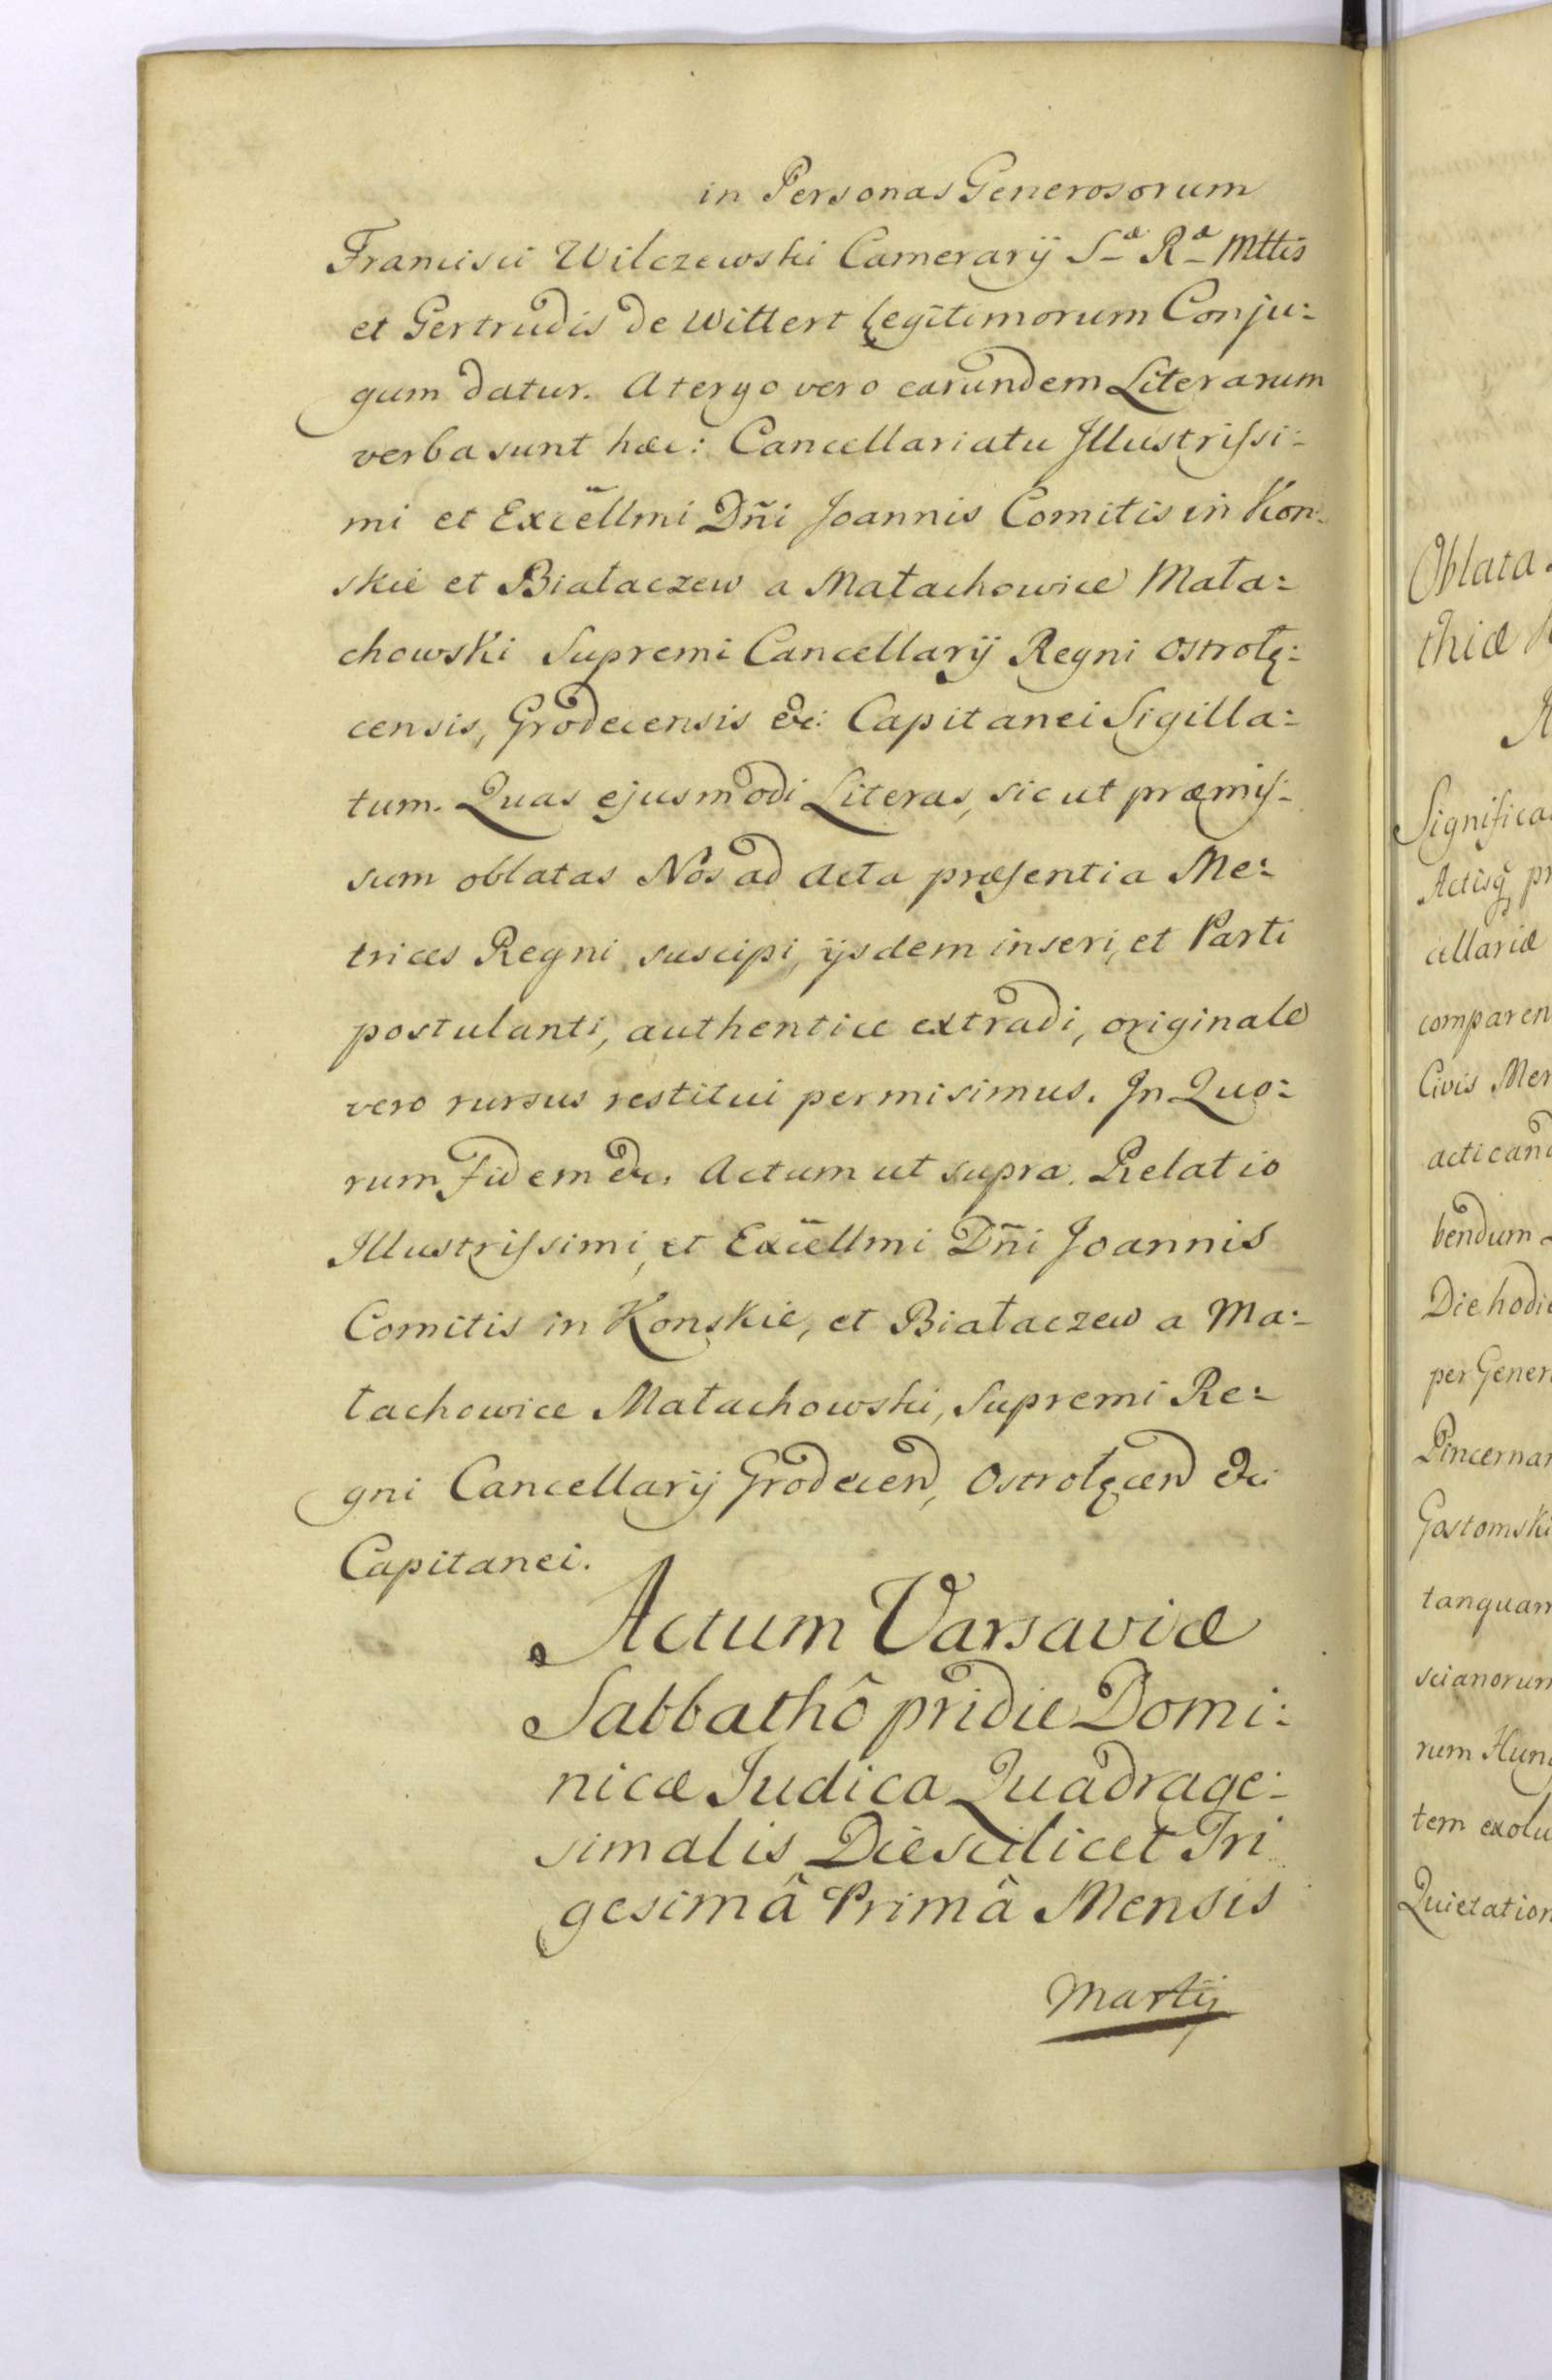 in Personas Generosorum
Francisci Wilczewski Camerarÿ Sᵃ Rᵃ Mttis
et Gertrudis de Wittert legitimorum Conju:
gum datur. A tergo vero earundem Literarum
verba sunt hæc: Cancellariatu Illustrissi:
mi et Excellmi Dñi Joannis Comitis in Kon:
skie et Białaczew a Małachowice Mała:
chowski Supremi Cancellarÿ Regni Ostrołę:
censis, Grodecensis &c: Capitanei Sigilla:
tum. Quas ejusmodi Literas, sic ut præmis:
sum oblatas Nos ad Acta præsentia Me:
trices Regni suscipi, ijsdem inseri, et Parti
postulanti, authentice extradi, originale
vero rursus restitui permisimus. In Quo:
rum Fidem &c. Actum ut supra. Relatio
Illustrissimi, et Excellmi Dñi Joannis
Comitis in Konskie, et Białaczew a Ma:
łachowice Małachowski, Supremi Re:
gni Cancellarÿ Grodecen, Ostrołęcen &c:
Capitanei.
Actum Varsaviæ
Sabbathô pridie Domi:
nicæ Judica Quadrage:
simalis Die scilicet Tri
gesimâ Primâ Mensis
Martij
Oblata
thiæ
Significa
Actisq pr
cellariæ
comparen
Civis Mer
acticand
bendum
Die hodie
per Gener
Pincernar
Gostomski
tanquam
scianorum
rum Hung
tem exolu
Quietation